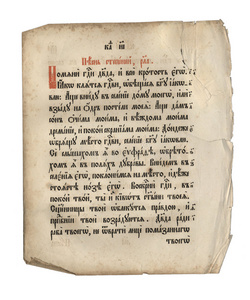 каѳ и҃і
Пѣснь степенней, рла.
Помани гдⷭи дв҃да, и всю кротость єгѡ.
Ꙗкѡ клѧтсѧ гдⷭви, ѡбѣщасѧ бг҃у їакѡв
лю: Аще вниду въ селенїе дому моегѡ, или
взыду на одръ постели моеѧ: Аще дамъ
сонъ очима моима, и вѣждома моима
дреманїе, и покой скранїама моима: Дондеже
ѡбрѧщу мѣсто гдⷭви, селенїе бг҃у їакѡвлю.
Се слышахомъ ѧ во еѵфраѳѣ, ѡбрѣто
хомъ ѧ в поляхъ дубравы. Внидемъ въ
селенїѧ егѡ, поклонимсѧ на мѣсто, идѣже
стоѧстѣ нозѣ егѡ. Воскресни гдⷭи, въ
покой твой, ты и кивотъ ст҃ыни твоеѧ.
Сщ҃енницы твои ѡблекутсѧ правдою, и
прпⷣбнїи твои возрадуютсѧ. Дв҃да ради
раба твоегѡ, не ѿврати лице помазаннагѡ
твоегѡ